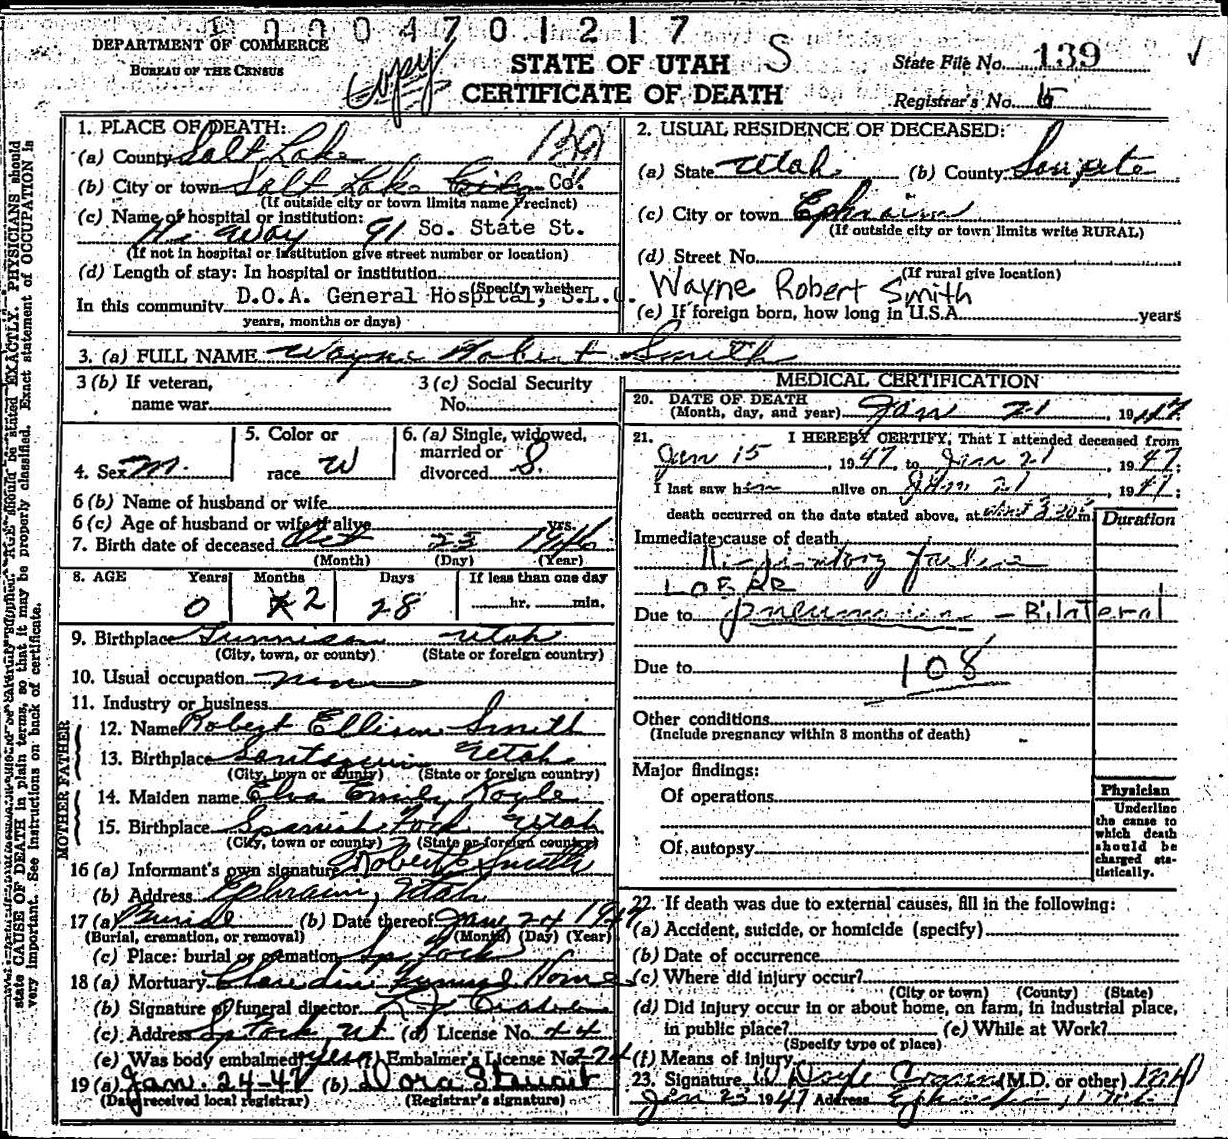 1000 4701217
DEPARTMENT OF COMMERCE
BUREAU OF THE CENSUS
Copy
STATE OF UTAH S
CERTIFICATE OF DEATH
State File No. 139
Registrar's No.
1. PLACE OF DEATH:
(a) County Salt Lake 139
(b) City or town Salt Lake City Co.
(If outside city or town limits name Precinct)
(c) Name of hospital or institution:
Hi Way 91 So. State St.
(If not in hospital or institution give street number or location)
(d) Length of stay: In hospital or institution
(Specify whether
In this community D.O.A. General Hospital, S.L.C.
years, months or days)
2. USUAL RESIDENCE OF DECEASED:
(a) State Utah (b) County Sanpete
(c) City or town Ephraim
(If outside city or town limits write RURAL)
(d) Street No.
(If rural give location)
Wayne Robert Smith
(e) If foreign born, how long in U.S.A. years
3. (a) FULL NAME Wayne Robert Smith
3 (b) If veteran,
name war
3 (c) Social Security
No.
4. Sex M.
5. Color or
race W
6. (a) Single, widowed,
married or
divorced S.
6 (b) Name of husband or wife
6 (c) Age of husband or wife if alive yrs.
7. Birth date of deceased Oct 23 1946
(Month) (Day) (Year)
8. AGE Years Months Days If less than one day
0 2 28 hr. min.
9. Birthplace Gunnison Utah
(City, town, or county) (State or foreign country)
10. Usual occupation none
11. Industry or business
FATHER
12. Name Robert Ellison Smith
13. Birthplace Santaquin Utah
(City, town or county) (State or foreign country)
MOTHER
14. Maiden name Elva Emily Koyle
15. Birthplace Spanish Fork Utah
(City, town or county) (State or foreign country)
16 (a) Informant's own signature Robert E Smith
(b) Address Ephraim, Utah
17 (a) Burial (b) Date thereof Jan 24 1947
(Burial, cremation, or removal) (Month) (Day) (Year)
(c) Place: burial or cremation Sp. Fork
18 (a) Mortuary Funeral Home
(b) Signature of funeral director
(c) Address Sp Fork Ut (d) License No. 44
(e) Was body embalmed? yes (f) Embalmer's License No. 274
19 (a) Jan. 24-47 (b) Dora Stewart
(Date received local registrar) (Registrar's signature)
MEDICAL CERTIFICATION
20. DATE OF DEATH
(Month, day, and year) Jan 21, 1947
21. I HEREBY CERTIFY, That I attended deceased from
Jan 15, 1947, to Jan 21, 1947;
I last saw him alive on Jan 21, 1947;
death occurred on the date stated above, at m
Duration
Immediate cause of death
Respiratory failure
LOBAR
Due to pneumonia - Bilateral
Due to 108
Other conditions
(Include pregnancy within 3 months of death)
Major findings:
Of operations
Of autopsy
Physician
Underline
the cause to
which death
should be
charged sta-
tistically.
22. If death was due to external causes, fill in the following:
(a) Accident, suicide, or homicide (specify)
(b) Date of occurrence
(c) Where did injury occur?
(City or town) (County) (State)
(d) Did injury occur in or about home, on farm, in industrial place,
in public place? (e) While at Work?
(Specify type of place)
(f) Means of injury
23. Signature (M.D. or other) MD
Jan 23, 1947 Address Ephraim, Utah
PHYSICIANS should
state CAUSE OF DEATH in plain terms, so that it may be properly classified. Exact statement of OCCUPATION is
very important. See instructions on back of certificate.